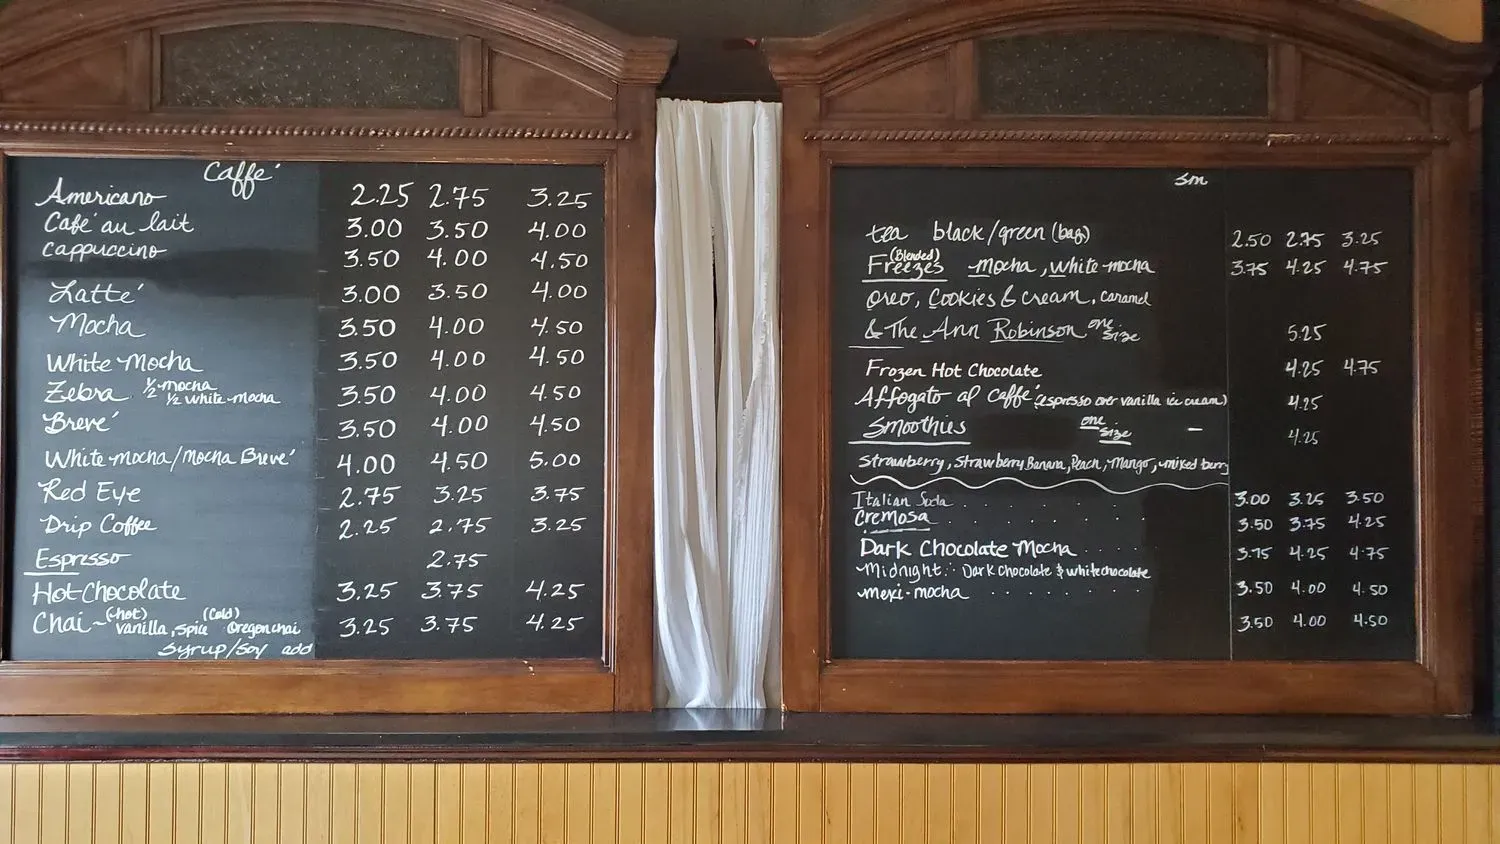 Caffé
Americano 2.25 2.75 3.25
Café au lait 3.00 3.50 4.00
Cappuccino 3.50 4.00 4.50
Latté 3.00 3.50 4.00
Mocha 3.50 4.00 4.50
White Mocha 3.50 4.00 4.50
Zebra ½ mocha ½ white mocha 3.50 4.00 4.50
Brevé 3.50 4.00 4.50
White mocha/mocha Brevé 4.00 4.50 5.00
Red Eye 2.75 3.25 3.75
Drip Coffee 2.25 2.75 3.25
Espresso 2.75
Hot Chocolate 3.25 3.75 4.25
Chai ~ (hot) vanilla, spice (Cold) Oregon chai 3.25 3.75 4.25
Syrup/Soy add
sm
tea black/green (bag) 2.50 2.75 3.25
Freezes (Blended) Mocha, white mocha 3.75 4.25 4.75
Oreo, Cookies & cream, caramel
& The Ann Robinson one size 5.25
Frozen Hot Chocolate 4.25 4.75
Affogato al caffé (espresso over vanilla ice cream) 4.25
Smoothies one size – 4.25
Strawberry, Strawberry Banana, Peach, Mango, mixed berry
Italian Soda . . . . . . 3.00 3.25 3.50
Cremosa . . . . . . 3.50 3.75 4.25
Dark Chocolate Mocha . . . . 3.75 4.25 4.75
Midnight: Dark Chocolate & white chocolate
3.50 4.00 4.50
mexi-mocha . . . . . .
3.50 4.00 4.50